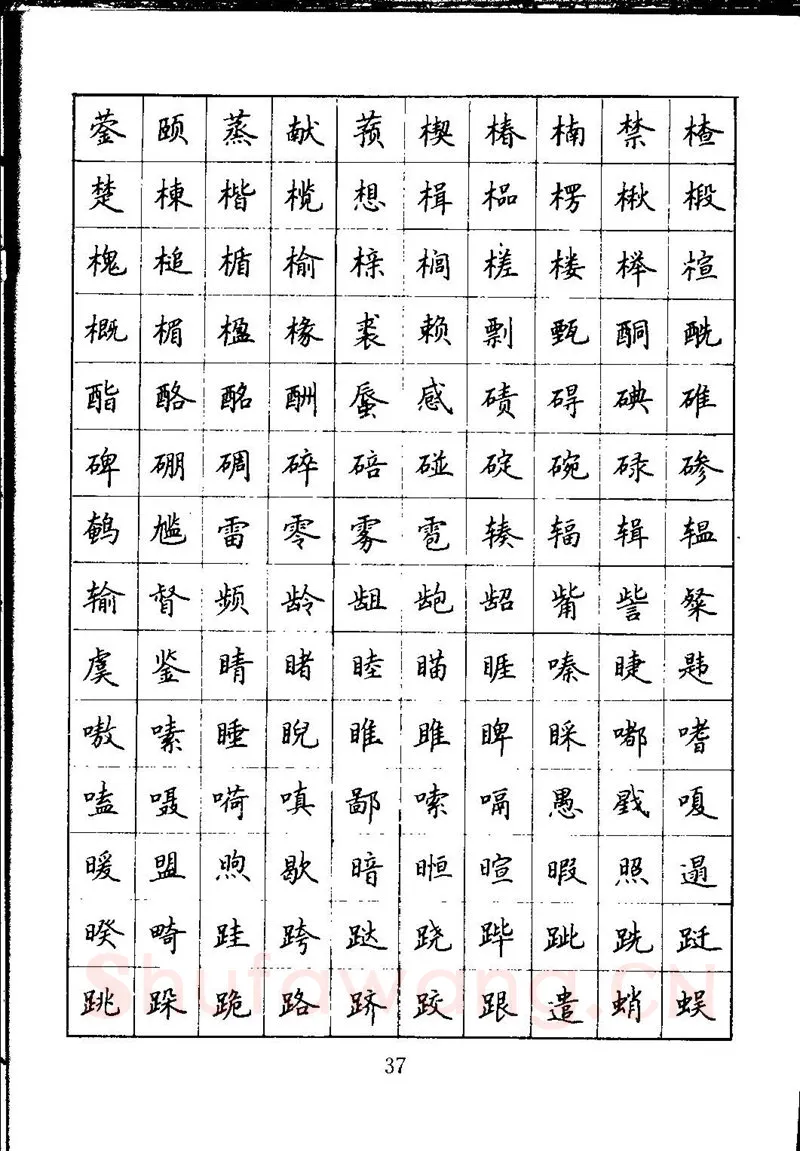 蓥颐蒸献蓣楔椿楠禁楂
楚楝楷榄想楫榀楞楸椴
槐槌楯榆榇榈槎楼榉楦
概楣楹椽裘赖剽甄酮酰
酯酪酩酬蜃感碛碍碘碓
碑硼碉碎碚碰碇碗碌碜
鹌尴雷零雾雹辏辐辑辒
输督频龄龃龅龆觜訾粲
虞鉴睛睹睦瞄睚嗪睫韪
嗷嗉睡睨睢雎睥睬嘟嗜
嗑嗫嗬嗔鄙嗦嗝愚戥嗄
暖盟煦歇暗暅暄暇照遢
暌畸跬跨跶跷跸跐跣跹
Shufawang.CN
跳跺跪路跻跤跟遣蛸蜈
37